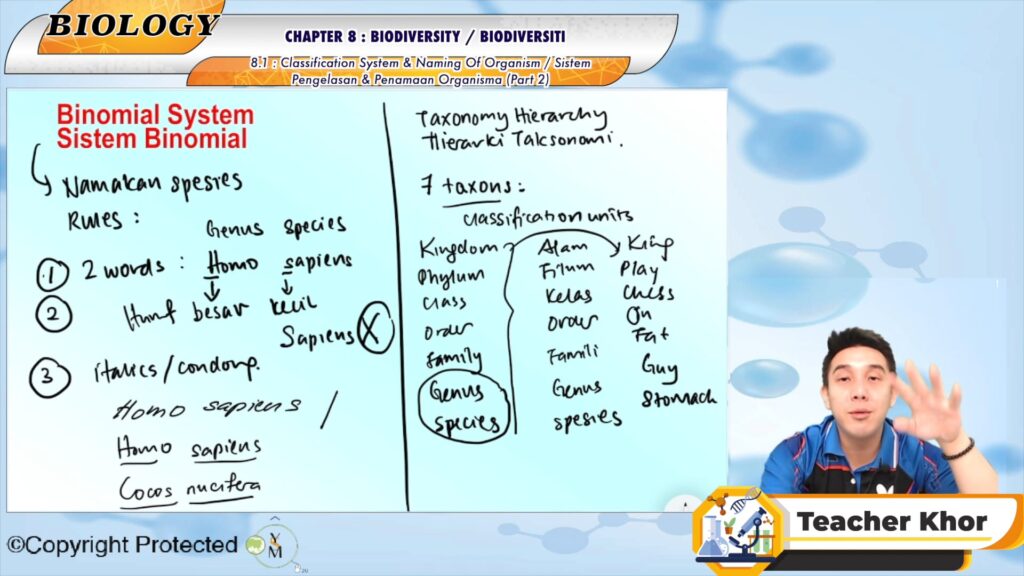 BIOLOGY
CHAPTER 8 : BIODIVERSITY / BIODIVERSITI
8.1 : Classification System & Naming Of Organism / Sistem
Pengelasan & Penamaan Organisma (Part 2)
Binomial System
Sistem Binomial
Namakan spesies
Rules :
Genus species
1 2 words : Homo sapiens
2 Huruf besar kecil
Sapiens X
3 italics/condong.
Homo sapiens /
Homo sapiens
Cocos nucifera
Taxonomy Hierarchy
Hierarki Taksonomi.
7 taxons :
classification units
Kingdom Alam King
Phylum Filum Play
Class Kelas Chess
Order Order On
Family Famili Fat
Genus Genus Guy
Species spesies Stomach
Teacher Khor
©Copyright Protected